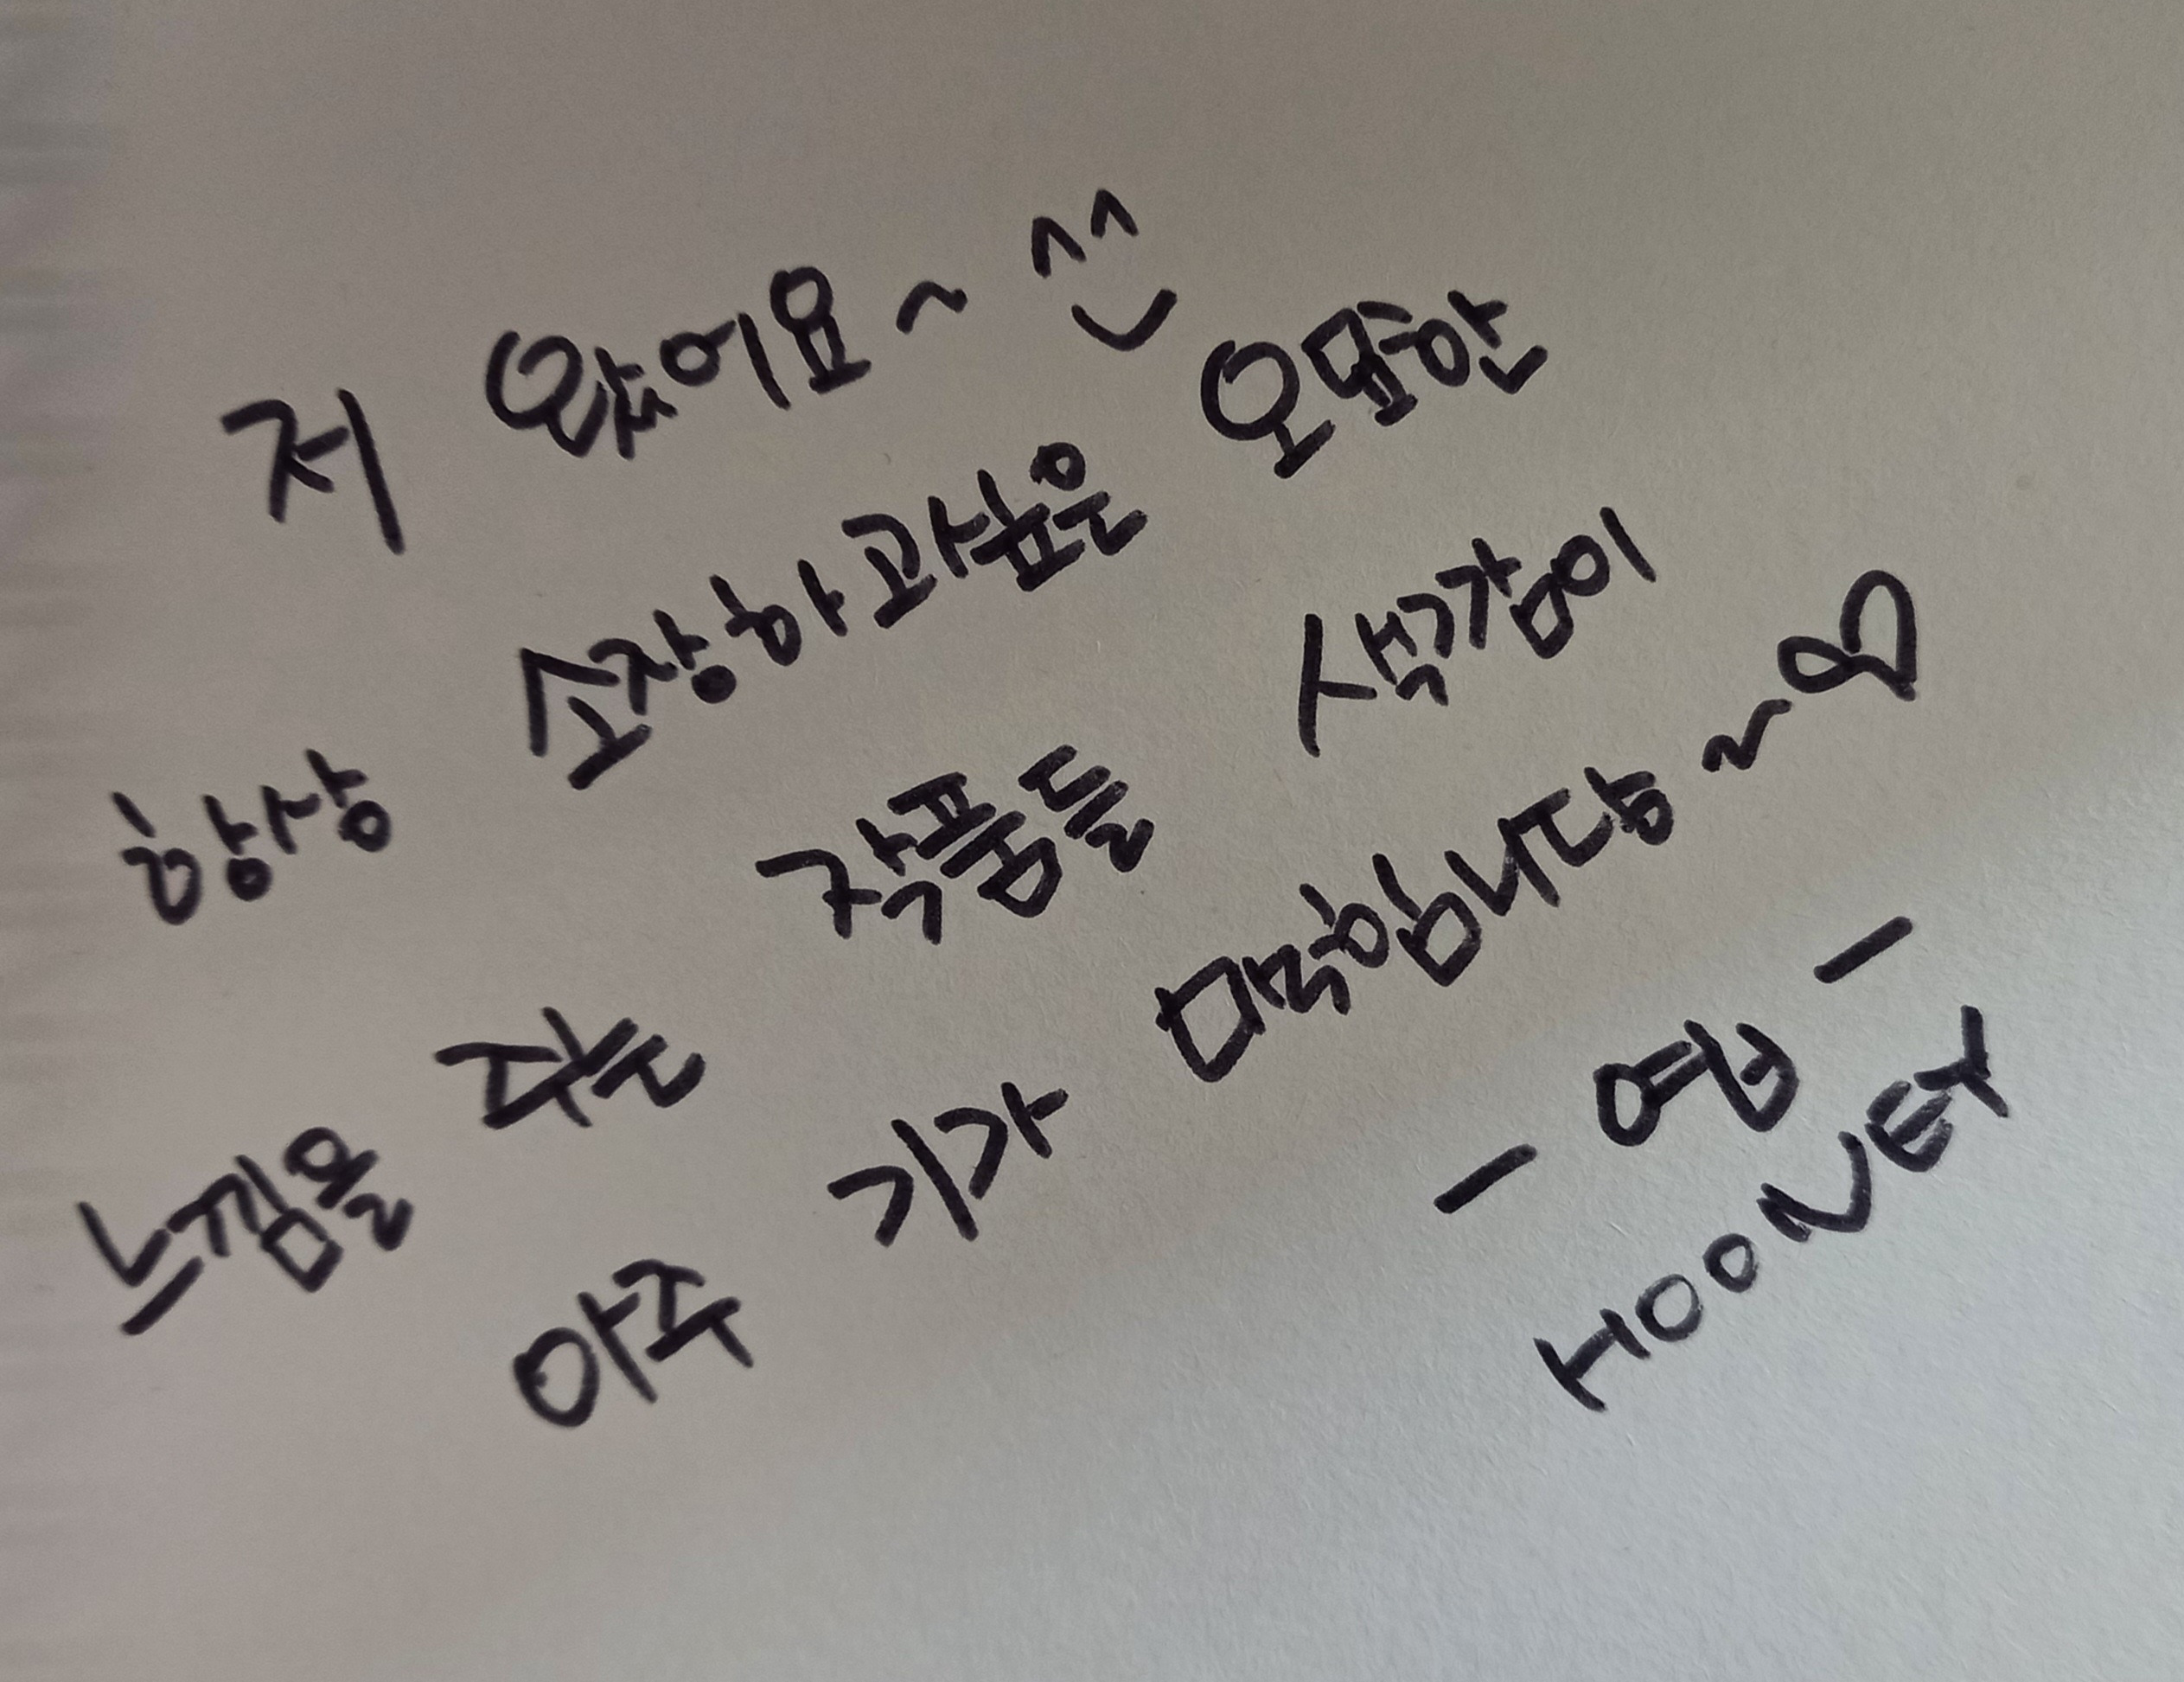 저 왔어요~ ^^
항상 소장하고싶은 오묘한
느낌을 주는 작품들 색감이
아주 기가 막힙니당~♡
HOONEY